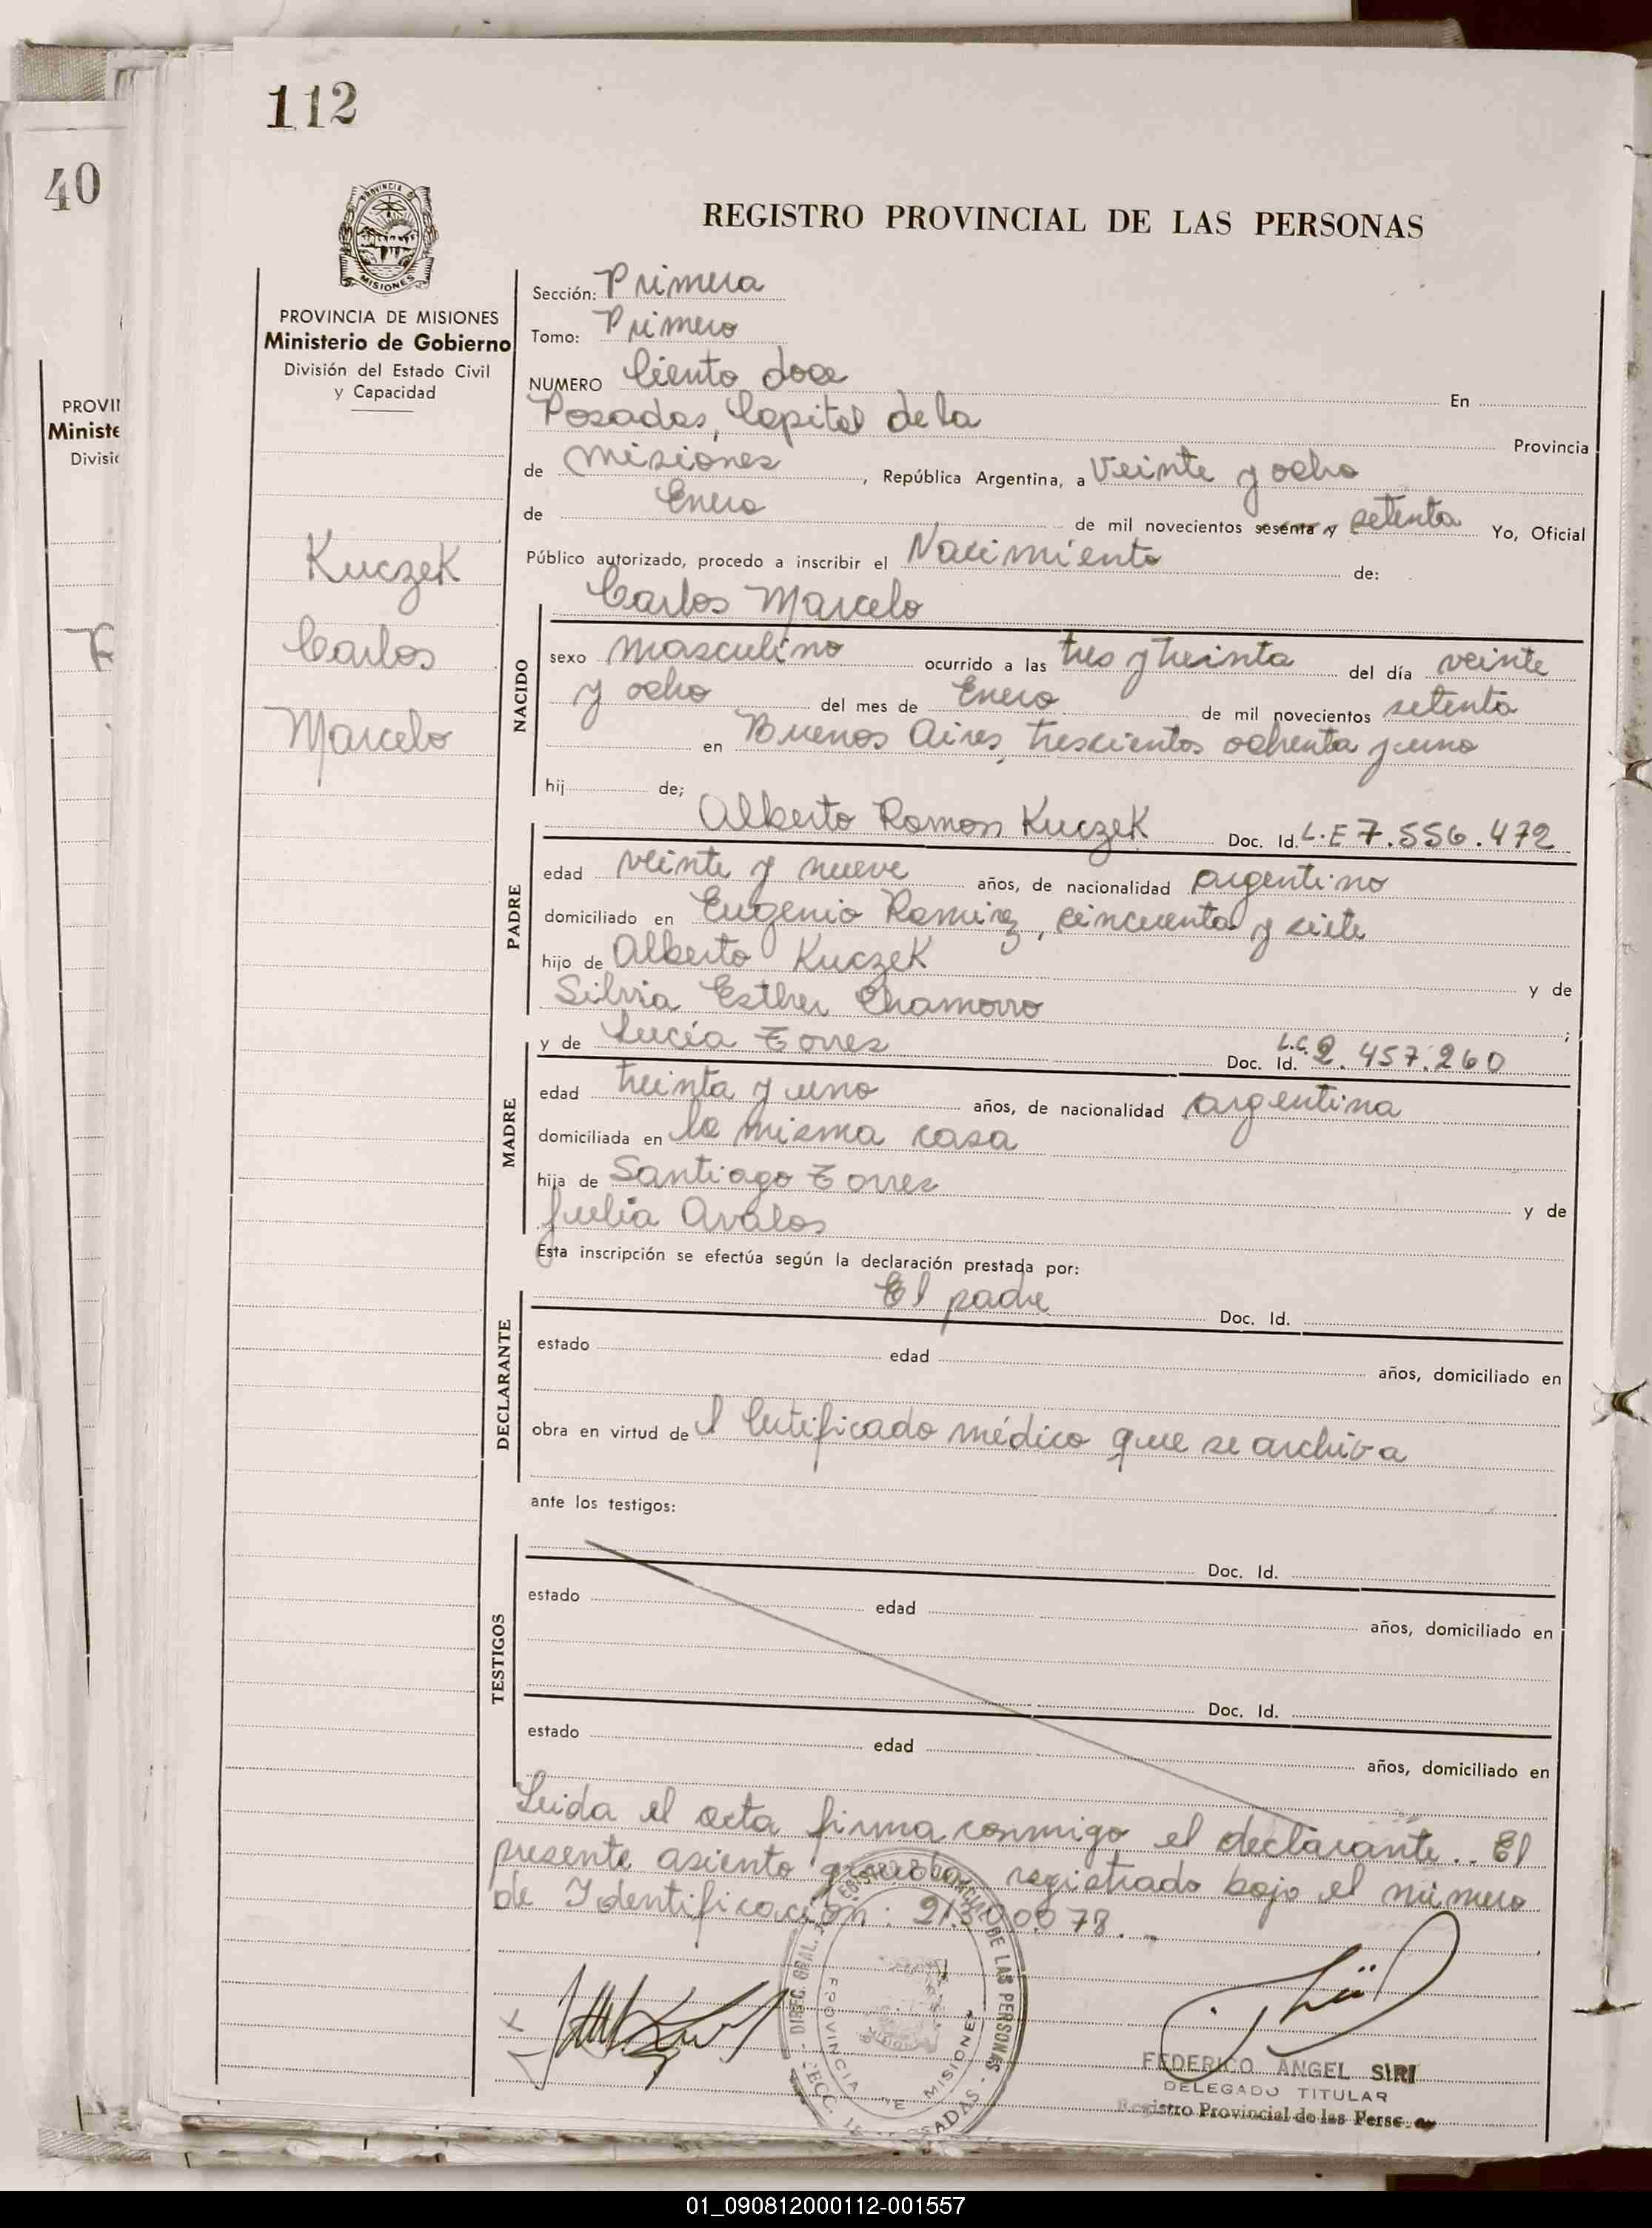 112
40
PROVINCIA DE MISIONES
REGISTRO PROVINCIAL DE LAS PERSONAS
PROVINCIA DE MISIONES
Ministerio de Gobierno
División del Estado Civil
y Capacidad
Kuczek
Carlos
Marcelo
Sección: Primera
Tomo: Primero
NUMERO Ciento doce En
Posadas, Capital de la Provincia
de Misiones, República Argentina, a veinte y ocho
de Enero de mil novecientos sesenta y setenta Yo, Oficial
Público autorizado, procedo a inscribir el Nacimiento de:
Carlos Marcelo
NACIDO
sexo masculino ocurrido a las tres y treinta del día veinte
y ocho del mes de Enero de mil novecientos setenta
en Buenos Aires, trescientos ochenta y uno
hij de;
Alberto Ramon Kuczek Doc. Id. L.E 7.556.472
PADRE
edad veinte y nueve años, de nacionalidad argentino
domiciliado en Eugenio Ramirez, cincuenta y siete
hijo de Alberto Kuczek y de
Silvia Esther Chamorro ;
y de Lucía Torres Doc. Id. L.C. 2.457.260
MADRE
edad treinta y uno años, de nacionalidad argentina
domiciliada en la misma casa
hija de Santiago Torres y de
Julia Avalos
Esta inscripción se efectúa según la declaración prestada por:
El padre Doc. Id.
DECLARANTE
estado edad años, domiciliado en
obra en virtud de l Certificado médico que se archiva
ante los testigos:
Doc. Id.
TESTIGOS
estado edad años, domiciliado en
Doc. Id.
estado edad años, domiciliado en
Leida el acta firma conmigo el declarante.. El
presente asiento queda registrado bajo el número
de Identificación: 21.300.078.-
FEDERICO ANGEL SIRI
DELEGADO TITULAR
Registro Provincial de las Personas
PROVI
Ministe
Divisi
01_090812000112-001557